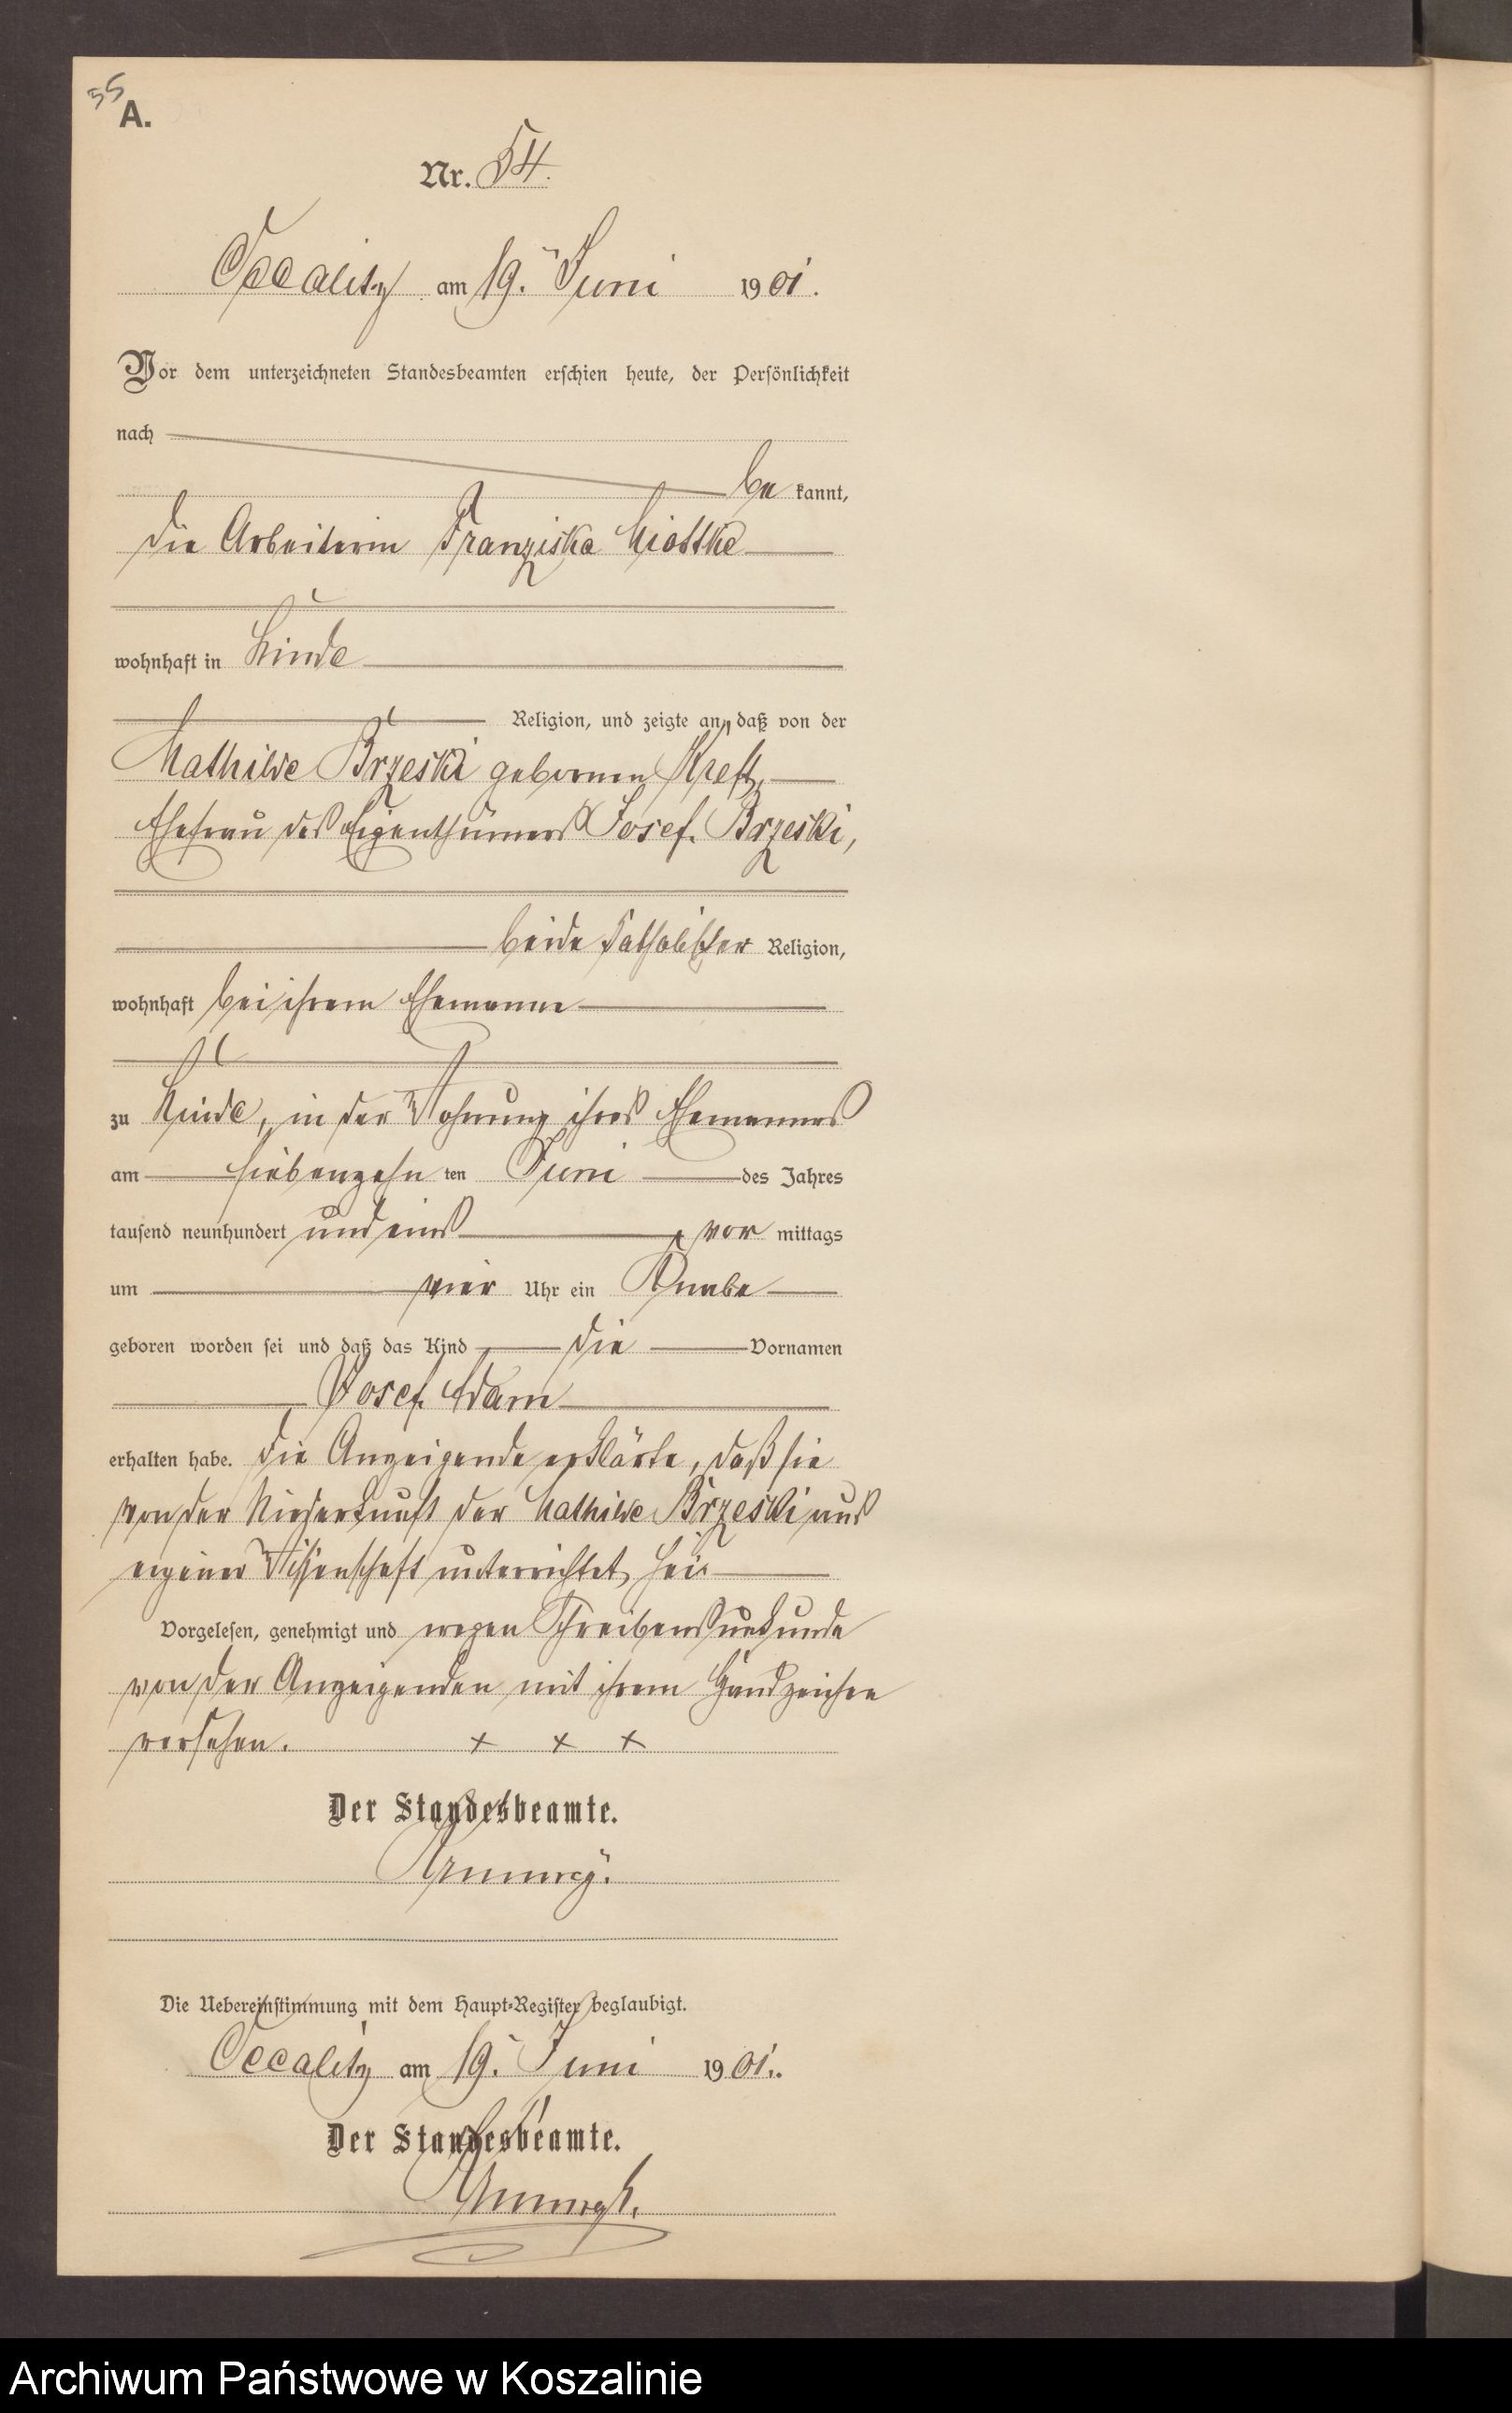 55
A.
Nr. 54.
Occalitz am 19. Juni 1901.
Vor dem unterzeichneten Standesbeamten erschien heute, der Persönlichkeit
nach
be kannt,
die Arbeiterin Franziska Miottke
wohnhaft in Linde
Religion, und zeigte an, daß von der
Mathilde Brzeski geborenen Kreft,
Ehefrau des Eigenthümers Josef Brzeski,
beide katholischer Religion,
wohnhaft bei ihrem Ehemanne
zu Linde, in der Wohnung ihres Ehemannes
am siebenzehn ten Juni des Jahres
tausend neunhundert und eins vor mittags
um vier Uhr ein Knabe
geboren worden sei und daß das Kind die Vornamen
Josef Adam
erhalten habe. Die Anzeigende erklärte, daß sie
von der Niederkunft der Mathilde Brzeski aus
eigener Wissenschaft unterrichtet sei.
Vorgelesen, genehmigt und wegen Schreibensunkunde
von der Anzeigenden mit ihrem Handzeichen
versehen. + + +
Der Standesbeamte.
Die Uebereinstimmung mit dem Haupt-Register beglaubigt.
Occalitz am 19. Juni 1901.
Der Standesbeamte.
Archiwum Państwowe w Koszalinie